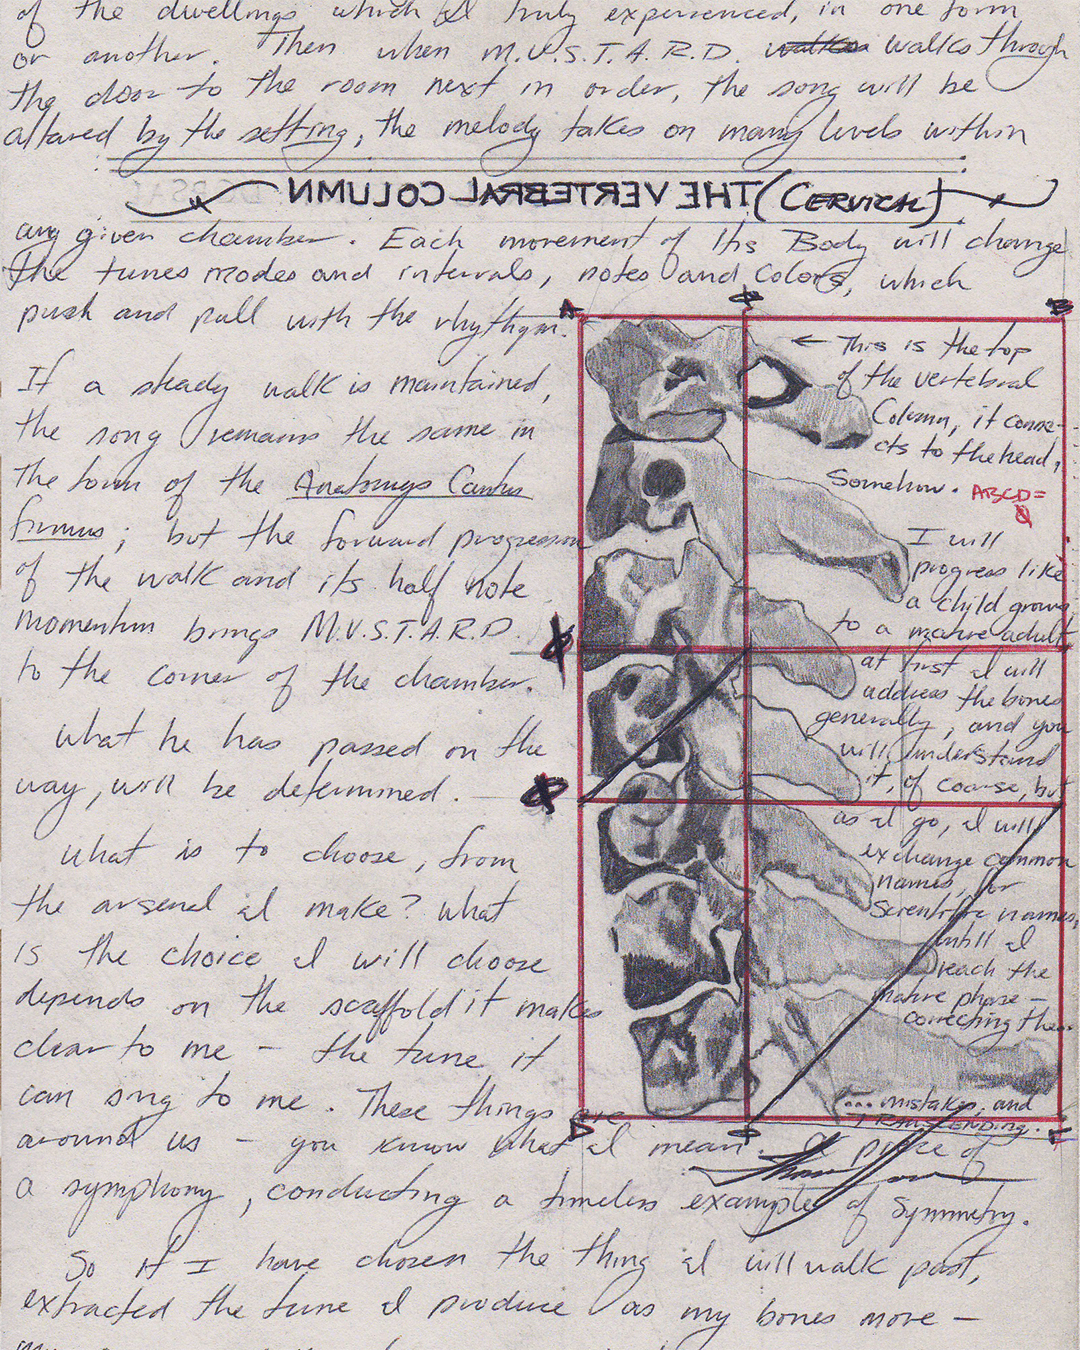 of the dwellings which I truly experienced, in one form
or another. Then when M.U.S.T.A.R.D. walks walks through
the door to the room next in order, the song will be
altared by the setting, the melody takes on many levels within
THE VERTEBRAL COLUMN (CERVICAL)
any given chamber. Each movement of Its Body will change
the tunes modes and intervals, notes and colors, which
push and pull with the rhythym.
If a steady walk is maintained,
the song remains the same in
the form of the Anatomys Cantus
firmus; but the forward progression
of the walk and its half note
momentum brings M.U.S.T.A.R.D.
to the corner of the chamber.
What he has passed on the
way, will be determined.
What is to choose, from
the arsenal I make? What
is the choice I will choose
depends on the scaffold it makes
clear to me – the tune it
can sing to me. These things are
around us – you know what I mean. A piece of
a symphony, conducting a timeless example of symmetry.
So if I have chosen the thing I will walk past,
extracted the tune I produce as my bones move –
A
B
← This is the top
of the vertebral
Column, it conne-
cts to the head,
Somehow.
ABCD=
I will
progress like
a child grows
to a mature adult
at first I will
address the bones
generally, and you
will understand
it, of coarse, but
as I go, I will
exchange common
names, for
Scientific names,
untill I
reach the
mature phase –
correcting the..
... mistakes, and
TRANSCENDING.
D